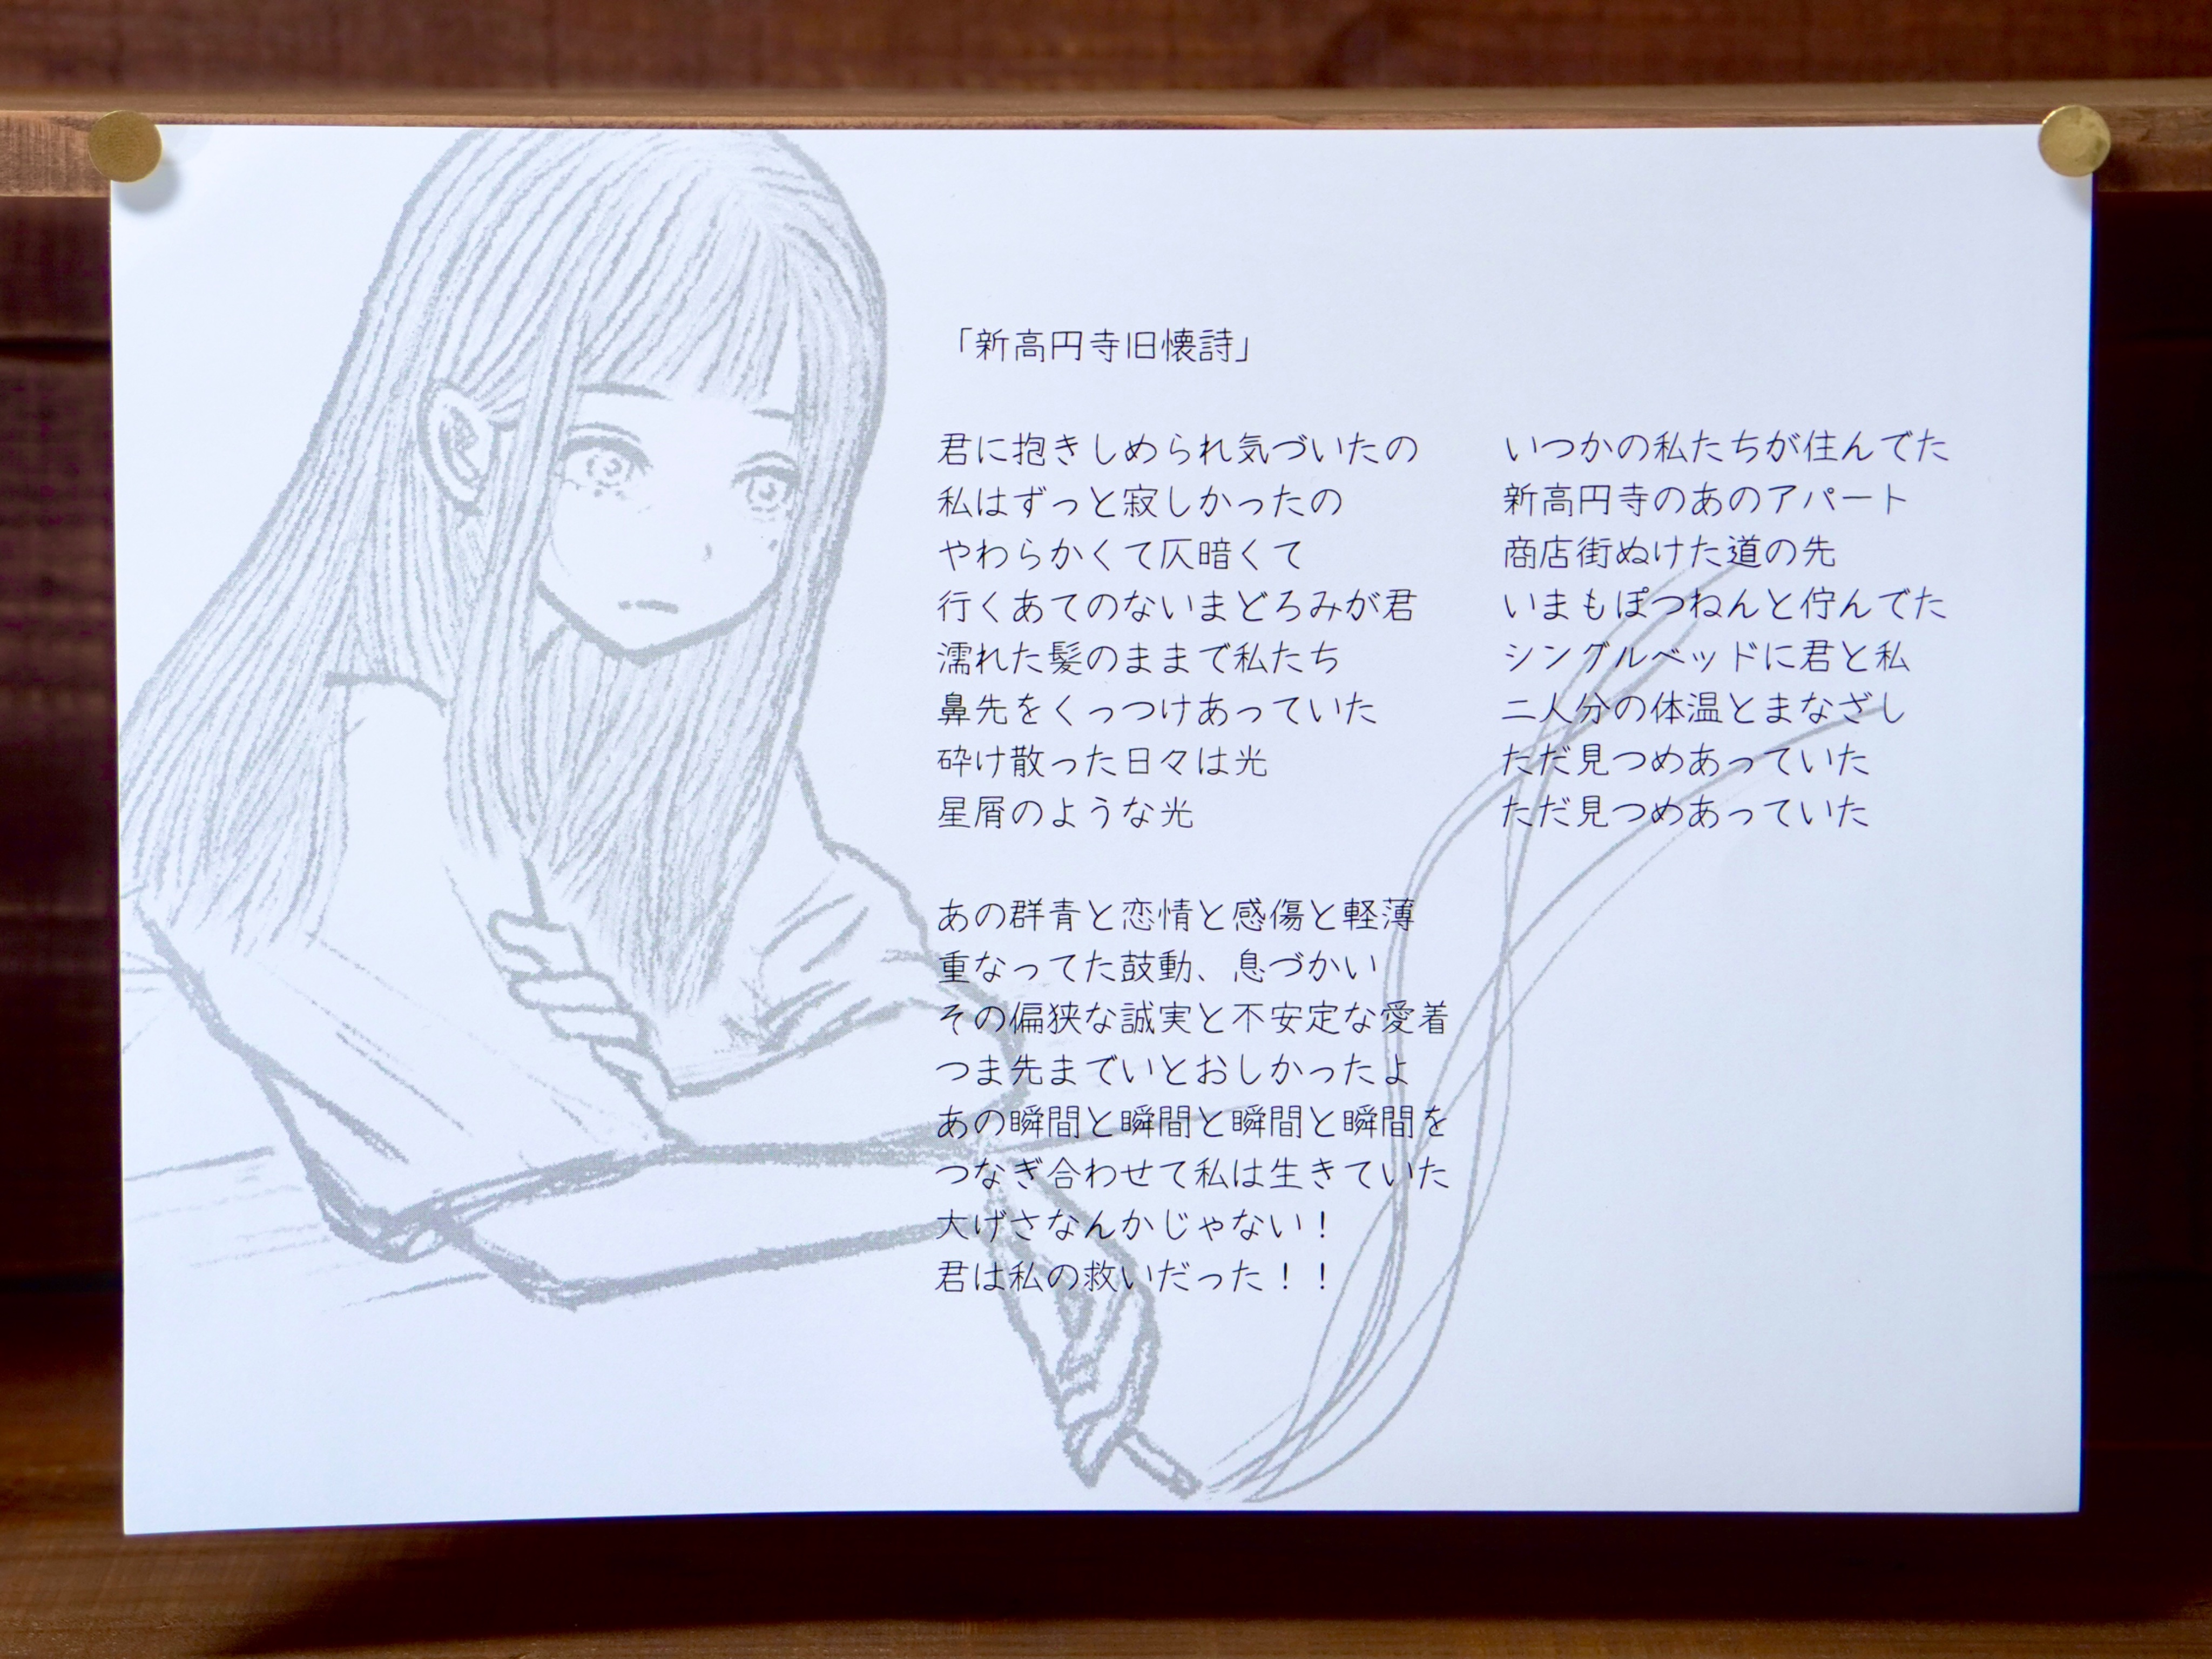 「新高円寺旧懐詩」
君に抱きしめられ気づいたの
私はずっと寂しかったの
やわらかくて仄暗くて
行くあてのないまどろみが君
濡れた髪のままで私たち
鼻先をくっつけあっていた
砕け散った日々は光
星屑のような光
あの群青と恋情と感傷と軽薄
重なってた鼓動、息づかい
その偏狭な誠実と不安定な愛着
つま先までいとおしかったよ
あの瞬間と瞬間と瞬間と瞬間を
つなぎ合わせて私は生きていた
大げさなんかじゃない！
君は私の救いだった！！
いつかの私たちが住んでた
新高円寺のあのアパート
商店街ぬけた道の先
いまもぽつねんと佇んでた
シングルベッドに君と私
二人分の体温とまなざし
ただ見つめあっていた
ただ見つめあっていた